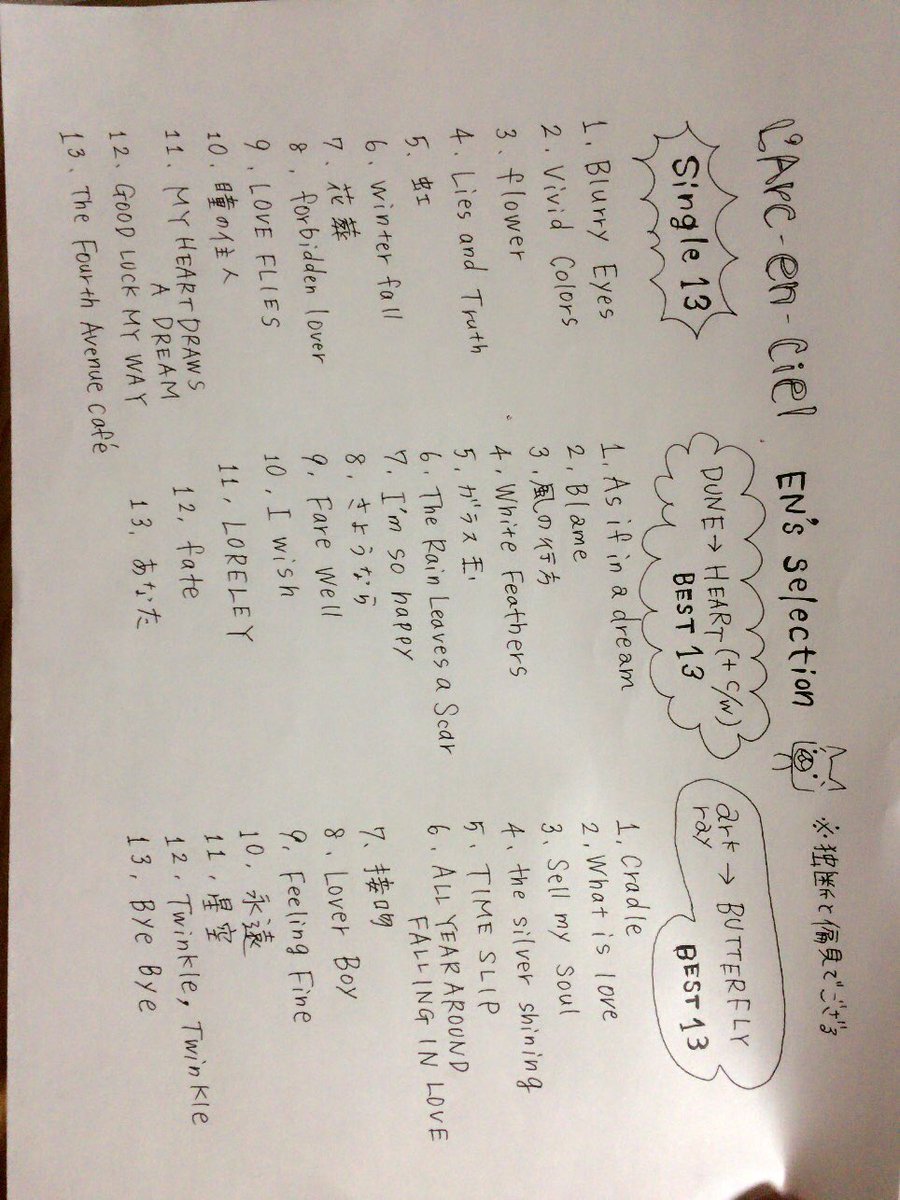 L'Arc-en-Ciel EN's selection
※独断と偏見でござる
Single 13
1. Blurry Eyes
2. Vivid Colors
3. flower
4. Lies and Truth
5. 虹
6. winter fall
7. 花葬
8. forbidden lover
9. LOVE FLIES
10. 瞳の住人
11. MY HEART DRAWS
A DREAM
12. GOOD LUCK MY WAY
13. The Fourth Avenue Café
DUNE→HEART (+c/w)
BEST 13
1. As if in a dream
2. Blame
3. 風の行方
4. White Feathers
5. ガラス玉
6. The Rain Leaves a Scar
7. I'm so happy
8. さようなら
9. Fare Well
10. I wish
11. LORELEY
12. fate
13. あなた
ark
ray
→ BUTTERFLY
BEST 13
1. Cradle
2. What is love
3. Sell my Soul
4. the silver shining
5. TIME SLIP
6. ALL YEAR AROUND
FALLING IN LOVE
7. 接吻
8. Lover Boy
9. Feeling Fine
10. 永遠
11. 星空
12. Twinkle, Twinkle
13. Bye Bye